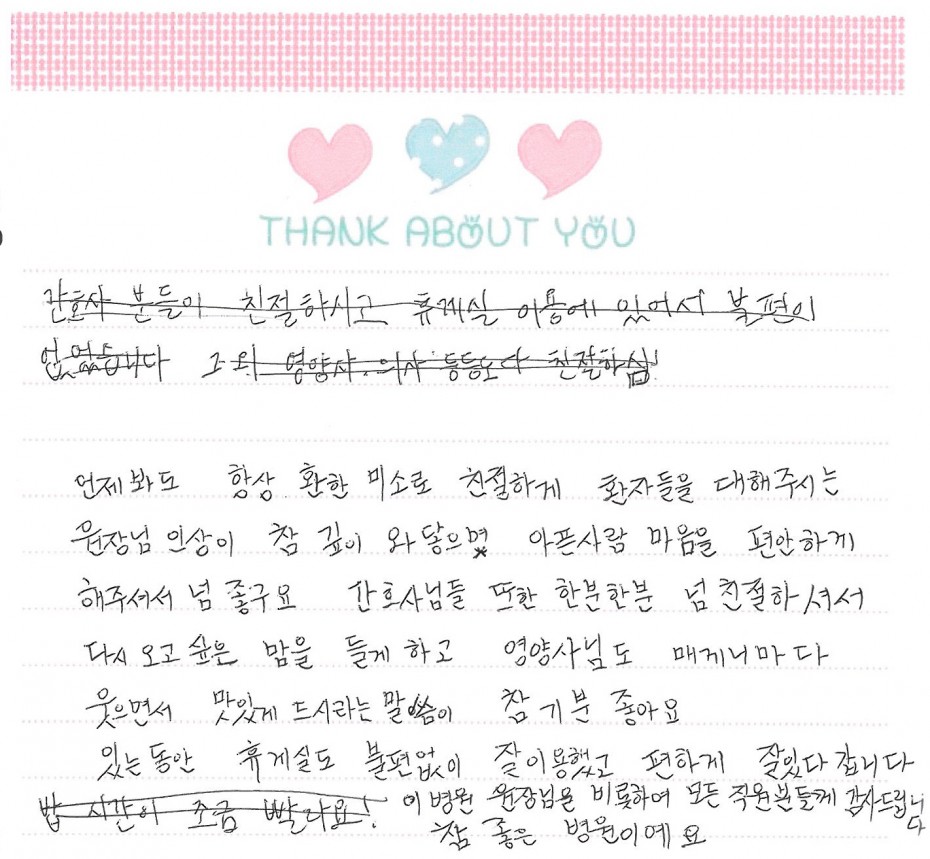 THANK ABOUT YOU
간호사 분들이 친절하시고 휴게실 이용에 있어서 불편이
없었습니다 그외 영양사 의사 등등모다 친절하심!
언제봐도 항상 환한 미소로 친절하게 환자들을 대해주시는
원장님 인상이 참 깊이 와 닿으며 아픈사람 마음을 편안하게
해주셔서 넘 좋구요 간호사님들 또한 한분한분 넘 친절하셔서
다시 오고 싶은 맘을 들게 하고 영양사님도 매게니마다
웃으면서 맛있게 드시라는 말씀이 참 기분 좋아요
있는동안 휴게실도 불편없이 잘이용했고 편하게 잘있다 갑니다
밥 시간이 조금 빨라요! 이 병원 원장님을 비롯하여 모든 직원분들께 감사드립니다
참 좋은 병원이예요